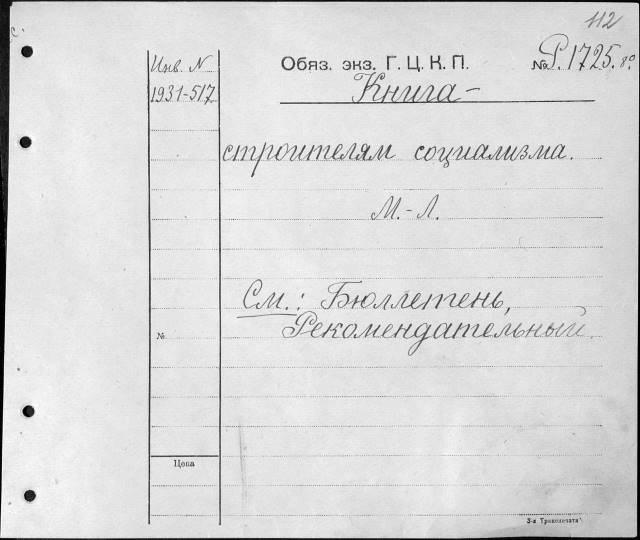 112
Инв. N
1931-517
Обяз. экз. Г. Ц. К. П.
№ Р. 1725. 8º
Книга –
строителям социализма.
М.-Л.
См.: Бюллетень,
Рекомендательный.
№
Цена
3-я Транспечати